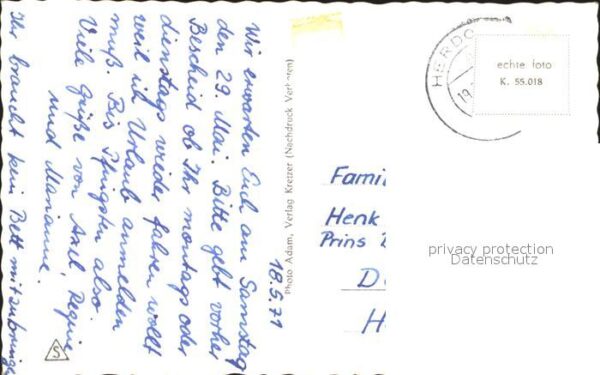 18.5.71
Wir erwarten Euch am Samstag
den 29. Mai. Bitte gebt vorher
Bescheid ob Ihr montags oder
dienstags wieder fahren wollt
weil ich Urlaub anmelden
muß. Bis Pfingsten also.
Viele Grüße von Axel, Regine
und Marianne.
Ihr braucht kein Bett mitzubringe
Photo Adam, Verlag Kretzer (Nachdruck Verboten)
HERDO
19.
echte foto
K. 55.018
Famil
Henk
Prins
D
H
privacy protection
Datenschutz
S